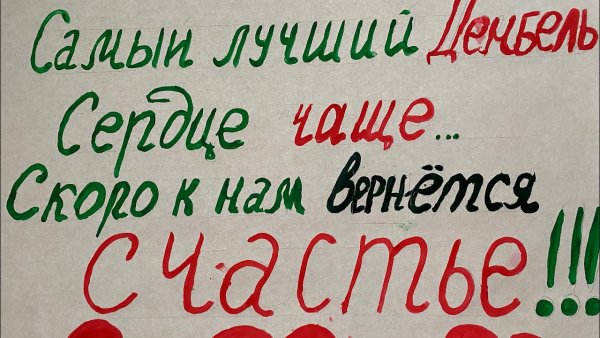 Самый лучший Дембель
Сердце чаще...
Скоро к нам вернётся
счастье!!!